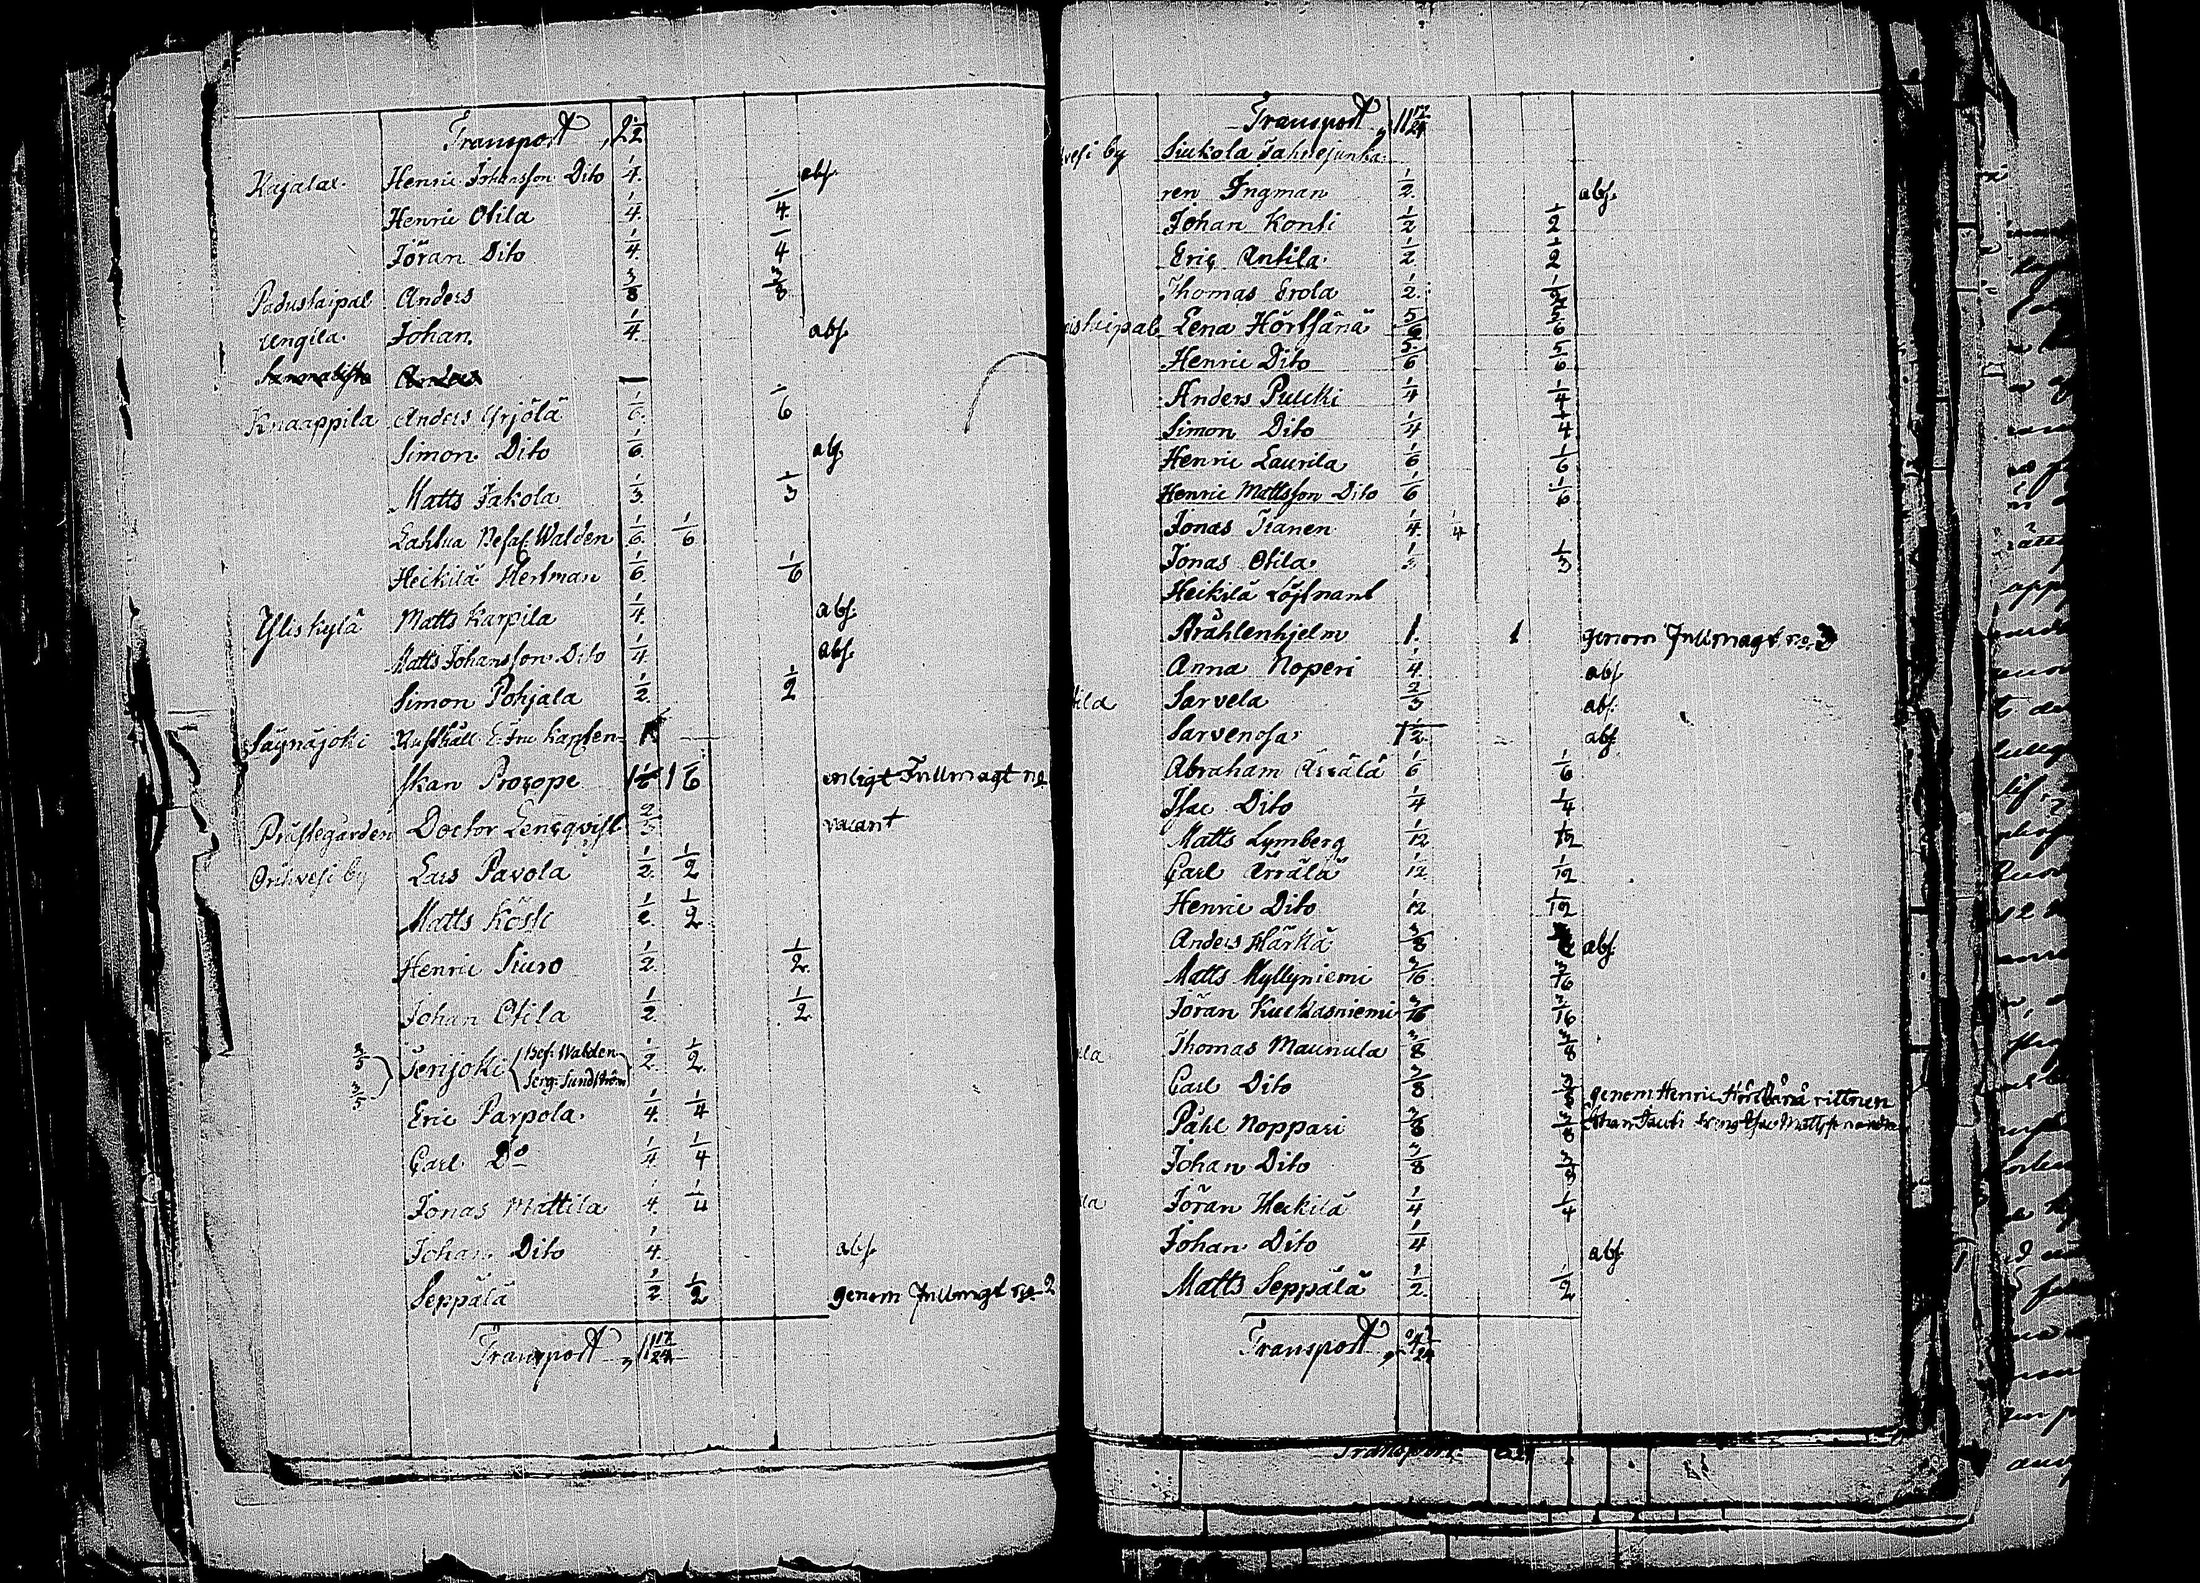 Transport, 2 1/2
Kajala. Henric Johansson Dito 1/4. abs.
Henric Otila 1/4. 1/4.
Jöran Dito 1/4. 1/4
Padustaipal Anders 3/8 3/8
Ungila. Johan. 1/4. abs.
Anders —
Knaappila Anders Yrjölä 1/6. 1/6
Simon Dito 1/6 abs.
Matts Jakola 1/3. 1/3
Lahtua Befal. Walden 1/6. 1/6
Heickilä Hertman 1/6. 1/6
Yliskylä Matts Karpila 1/4. abs.
Matts Johansson Dito 1/4. abs.
Simon Pohjala 1/2. 1/2
Säynäjoki Rusthåll E. Fru Kapten-
skan Procope 1 1/6 1 1/6 enligt Fullmagt no
Prästegården Doctor Lencqvist 2/3 vacant
Orihvesi by Lars Pavola 1/2. 1/2
Matts KöSti 1/2. 1/2
Henric Siuro 1/2. 1/2.
Johan Otila 1/2. 1/2.
Terijoki Bef. Walden 1/2. 1/2.
Serg. Sundström
Eric Parpola. 1/4. 1/4
Carl Do 1/4. 1/4
Jonas Mattila 1/4. 1/4
Johan Dito 1/4. abs.
Seppälä 1/2. 1/2 genom Fullmagt no 2
Transport, 11 17/24
Transport, 11 17/24
vesi by Siukola Fahnejunka-
ren Ingman 1/2. abs.
Johan Konti 1/2 1/2
Eric Antila. 1/2 1/2
Thomas Erola 1/2. 1/2
istaipal Lena Hörtsänä 5/6 5/6
Henric Dito 5/6 5/6
Anders Pulcki 1/4 1/4
Simon Dito 1/4 1/4
Henric Laurila 1/6 1/6
Henric Mattsson Dito 1/6 1/6
Jonas Iianen 1/4. 1/4
Jonas Otila. 1/3 1/3
Heikilä Löjtnant
Strählenhjelm 1. 1 genom Fullmagt no. 3
Anna Noperi 1/4. abs
tila Sarvela 2/3 abs.
Sarvenosa. 1 1/2 abs
Abraham Ärrälä 1/6 1/6
Isac Dito 1/4 1/4
Matts Lymberg 1/12 1/12
Carl Ärrälä 1/12 1/12
Henric Dito 1/12 1/12
Anders Härkä 3/8 abs
Matts Myllyniemi 3/16 3/16
Jöran Kuckasniemi 3/16 3/16
la Thomas Maunula 3/8 3/8
Carl Dito 3/8 3/8 genom Henric Hörtsänä
Påhl Noppari 3/8 3/8
Johan Dito 3/8 3/8
la Jöran Heikilä 1/4 1/4
Johan Dito 1/4 abs
Matts Seppälä 1/2. 1/2
Transport,
Transport